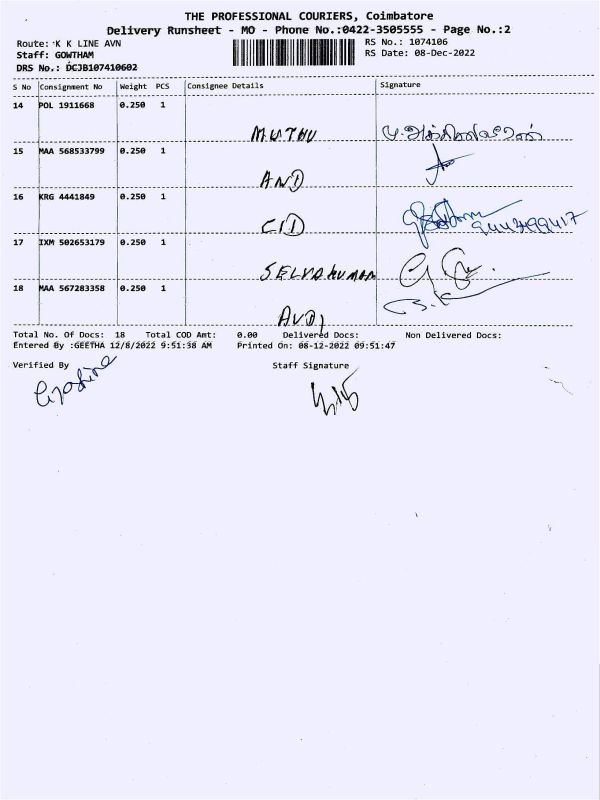 THE PROFESSIONAL COURIERS, Coimbatore
Delivery Runsheet - MO - Phone No.:0422-3505555 - Page No.:2
Route: K K LINE AVN
RS No.: 1074106
Staff: GOWTHAM
RS Date: 08-Dec-2022
DRS No.: DCJB107410602
S No Consignment No Weight PCS Consignee Details Signature
14 POL 1911668 0.250 1
MUTHU
15 MAA 568533799 0.250 1
AND
16 KRG 4441849 0.250 1
CID
17 IXM 502653179 0.250 1
SELVAKUMAR
18 MAA 567283358 0.250 1
Total No. Of Docs: 18 Total COD Amt: 0.00 Delivered Docs: Non Delivered Docs:
Entered By :GEETHA 12/8/2022 9:51:38 AM Printed On: 08-12-2022 09:51:47
Verified By Staff Signature